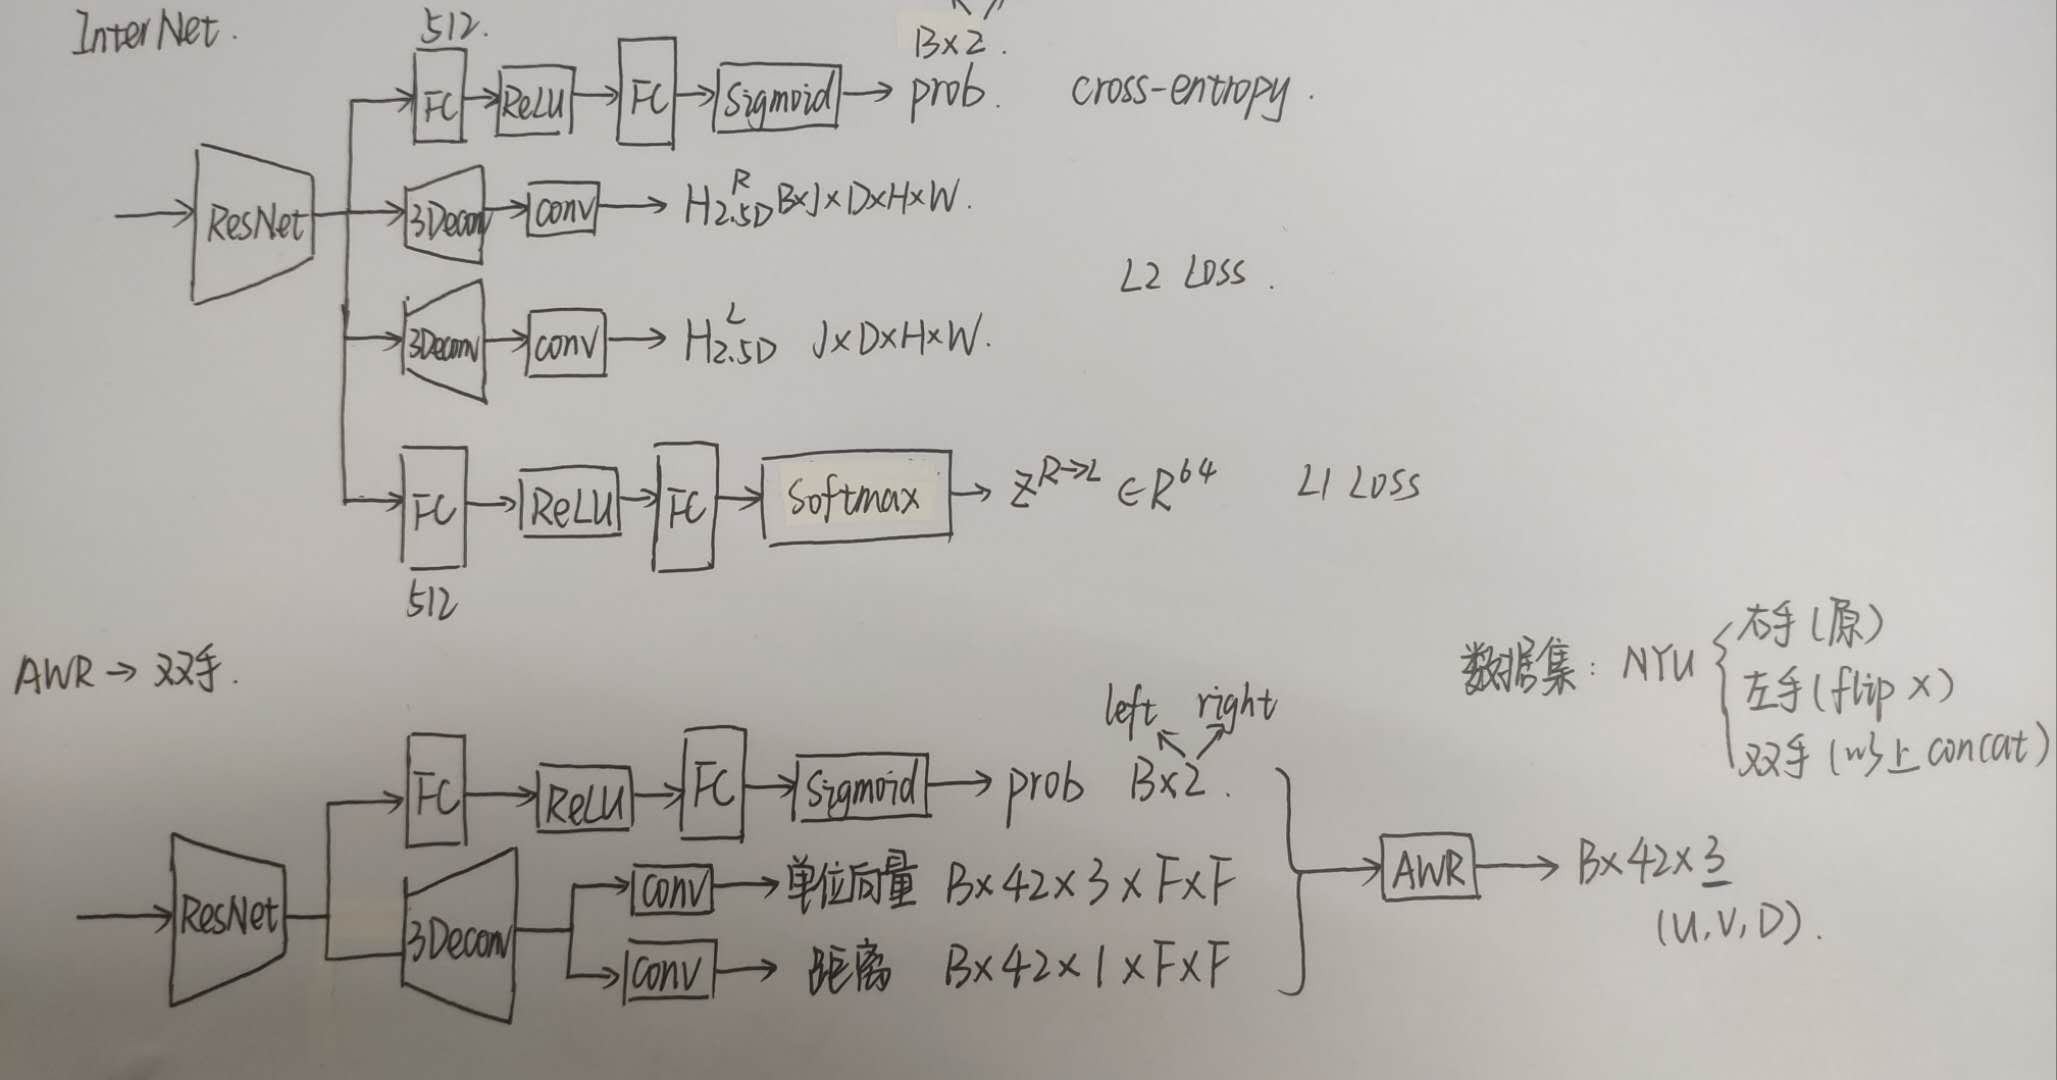 InterNet.
512.
B×2.
FC ReLU FC Sigmoid prob. cross-entropy.
ResNet
3Deconv conv H R 2.5D B×J×D×H×W.
L2 Loss.
3Deconv conv H L 2.5D J×D×H×W.
FC ReLU FC Softmax Z R→L ∈R 64 L1 Loss
512
AWR → 双手.
数据集: NYU
右手(原)
左手(flip x)
双手(以上concat)
left right
FC ReLU FC Sigmoid prob B×2.
ResNet
3Deconv
conv 单位向量 B×42×3×F×F
conv 距离 B×42×1×F×F
AWR B×42×3
(U,V,D).